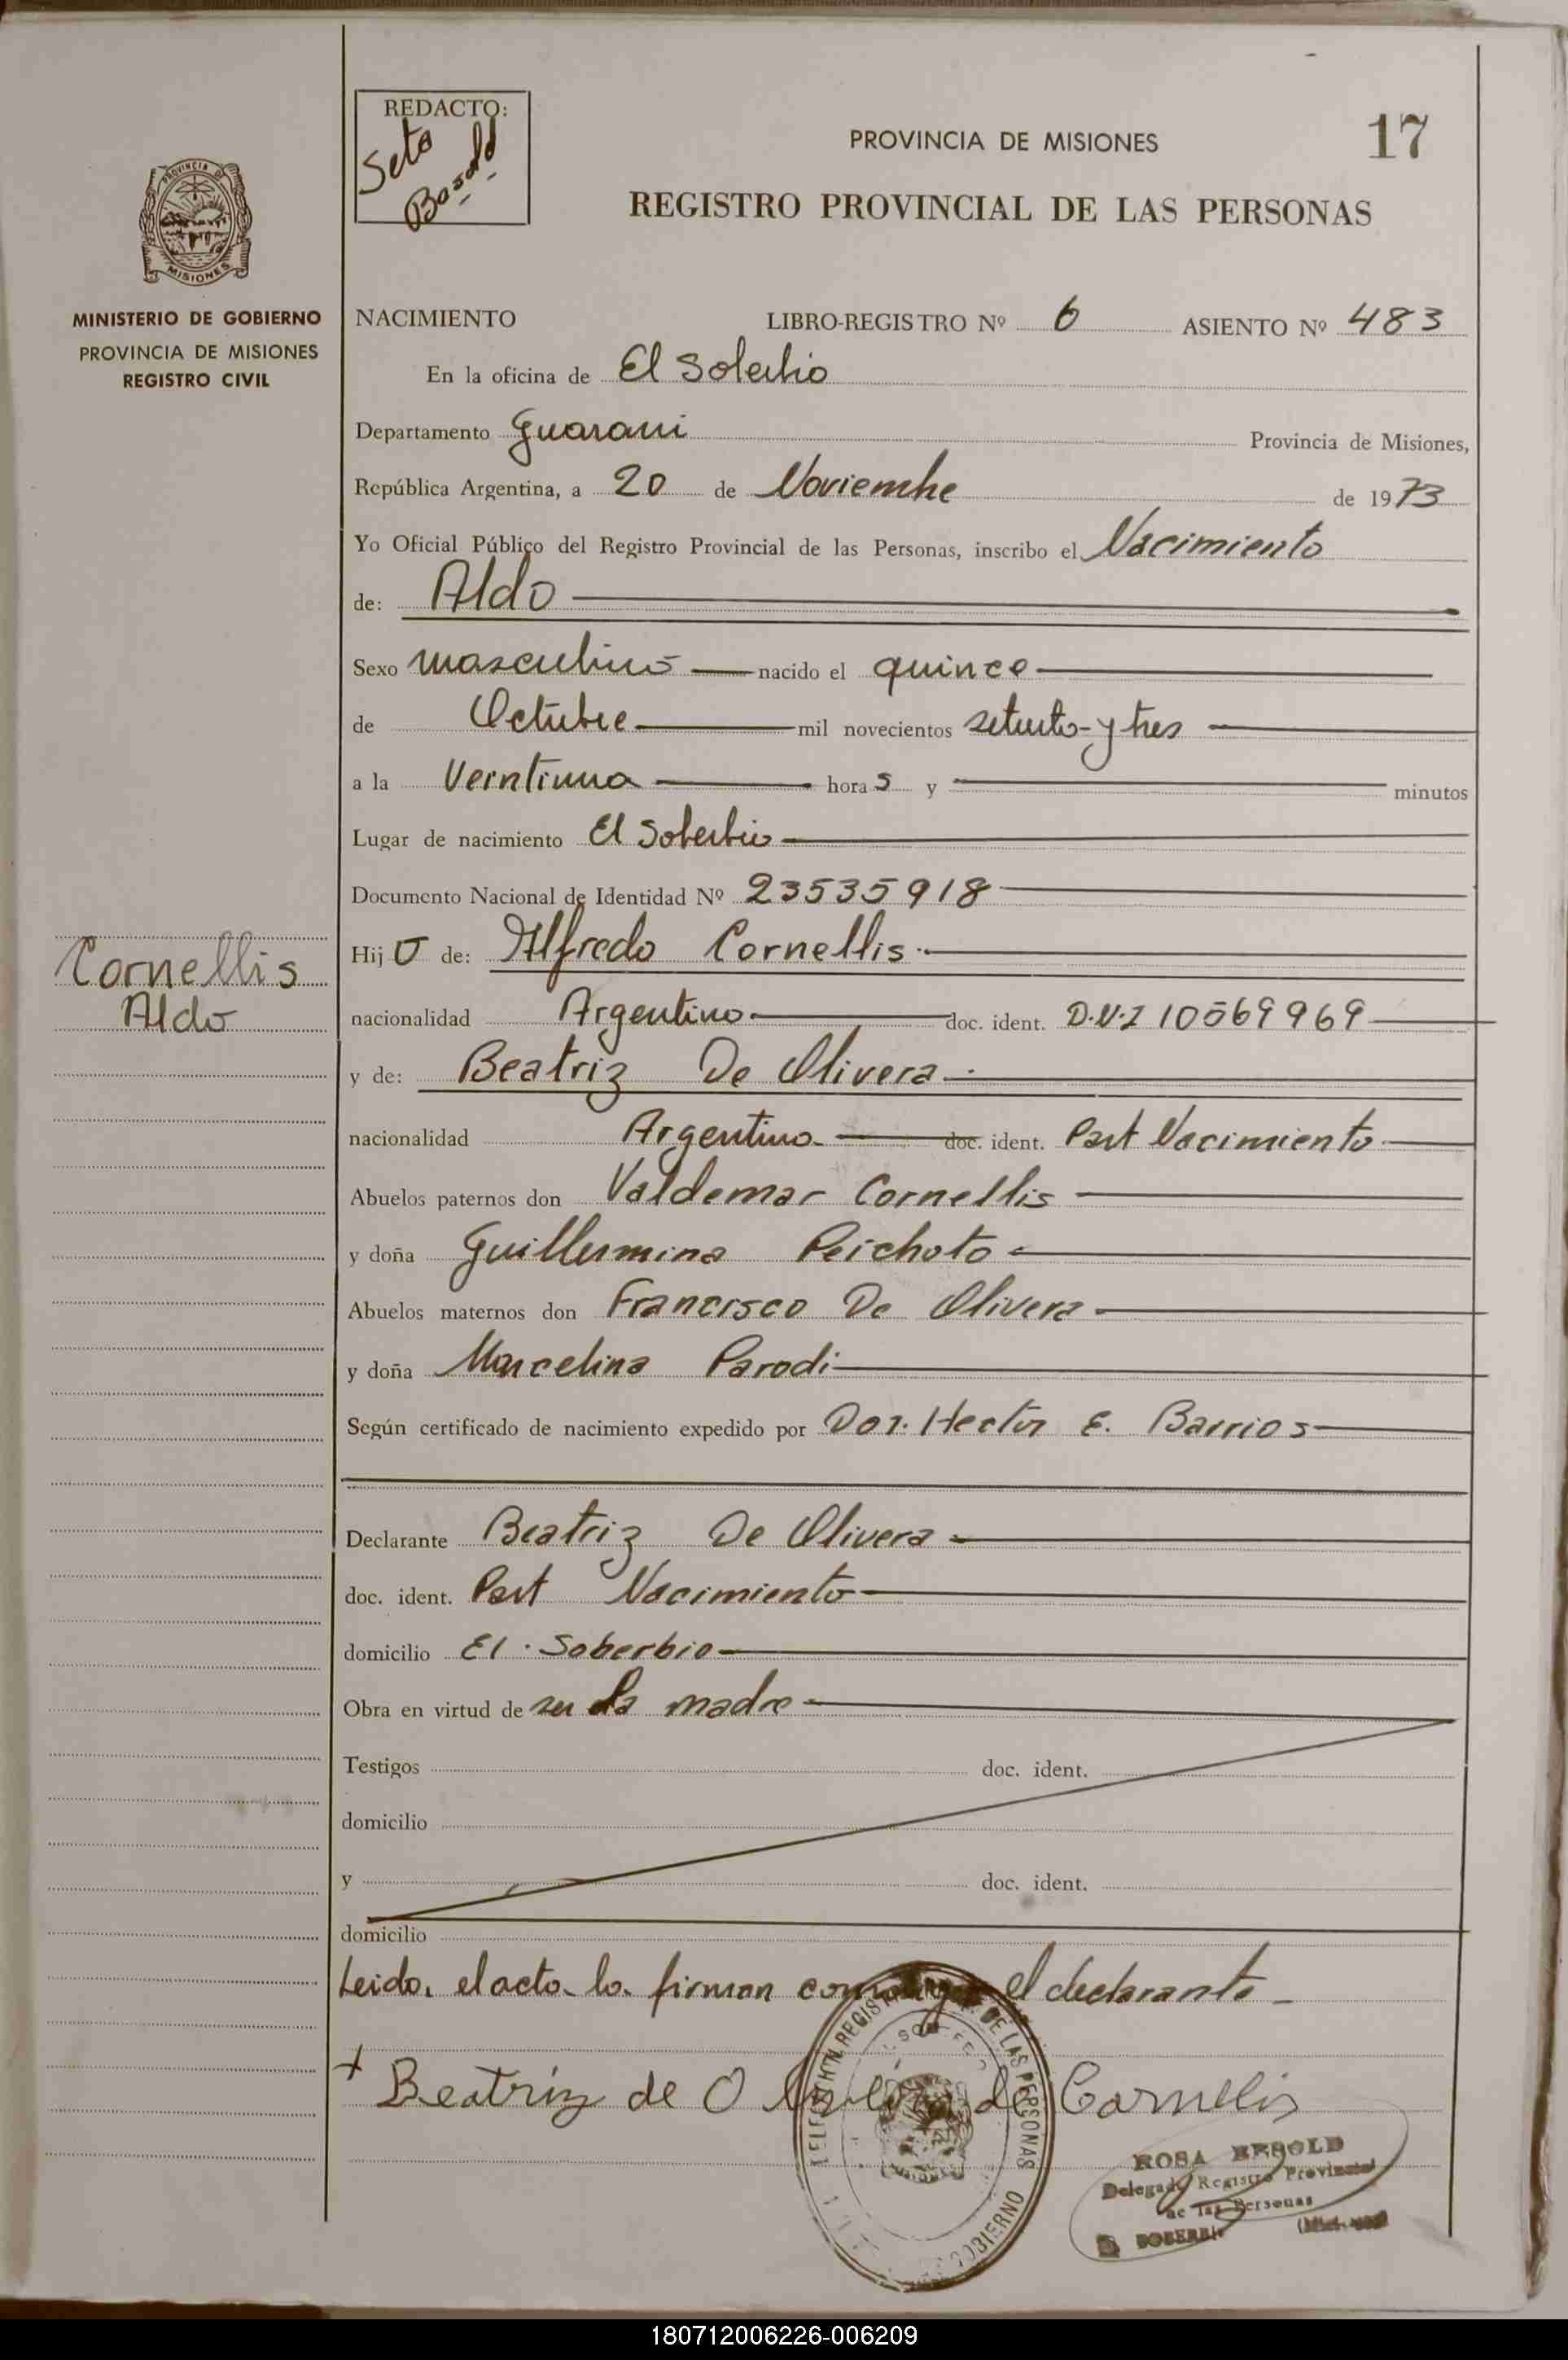 REDACTO:
PROVINCIA DE MISIONES
17
REGISTRO PROVINCIAL DE LAS PERSONAS
PROVINCIA DE
MISIONES
MINISTERIO DE GOBIERNO
PROVINCIA DE MISIONES
REGISTRO CIVIL
NACIMIENTO LIBRO-REGISTRO Nº 6 ASIENTO Nº 483
En la oficina de El Soberbio
Departamento Guarani Provincia de Misiones,
República Argentina, a 20 de Noviembre de 1973
Yo Oficial Público del Registro Provincial de las Personas, inscribo el Nacimiento
de: Aldo
Sexo masculino nacido el quince
de Octubre mil novecientos setenta y tres
a la Veintiuna horas y minutos
Lugar de nacimiento El Soberbio
Documento Nacional de Identidad Nº 23535918
Hijo de: Alfredo Cornellis
Cornellis
Aldo
nacionalidad Argentino doc. ident. D.N.I 10569969
y de: Beatriz De Olivera
nacionalidad Argentina doc. ident. Part Nacimiento
Abuelos paternos don Valdemar Cornellis
y doña Guillermina Peichoto
Abuelos maternos don Francisco De Olivera
y doña Marcelina Parodi
Según certificado de nacimiento expedido por Hector E. Barrios
Declarante Beatriz De Olivera
doc. ident. Part Nacimiento
domicilio El Soberbio
Obra en virtud de ser la madre
Testigos doc. ident.
domicilio
y doc. ident.
domicilio
Leido, el acta la firman el declarante
x Beatriz de Olivera de Cornelis
DE LAS PERSONAS
GOBIERNO
ROSA BESOLD
Delegado Registro Provincial
de las Personas
SOBERBIO
180712006226-006209